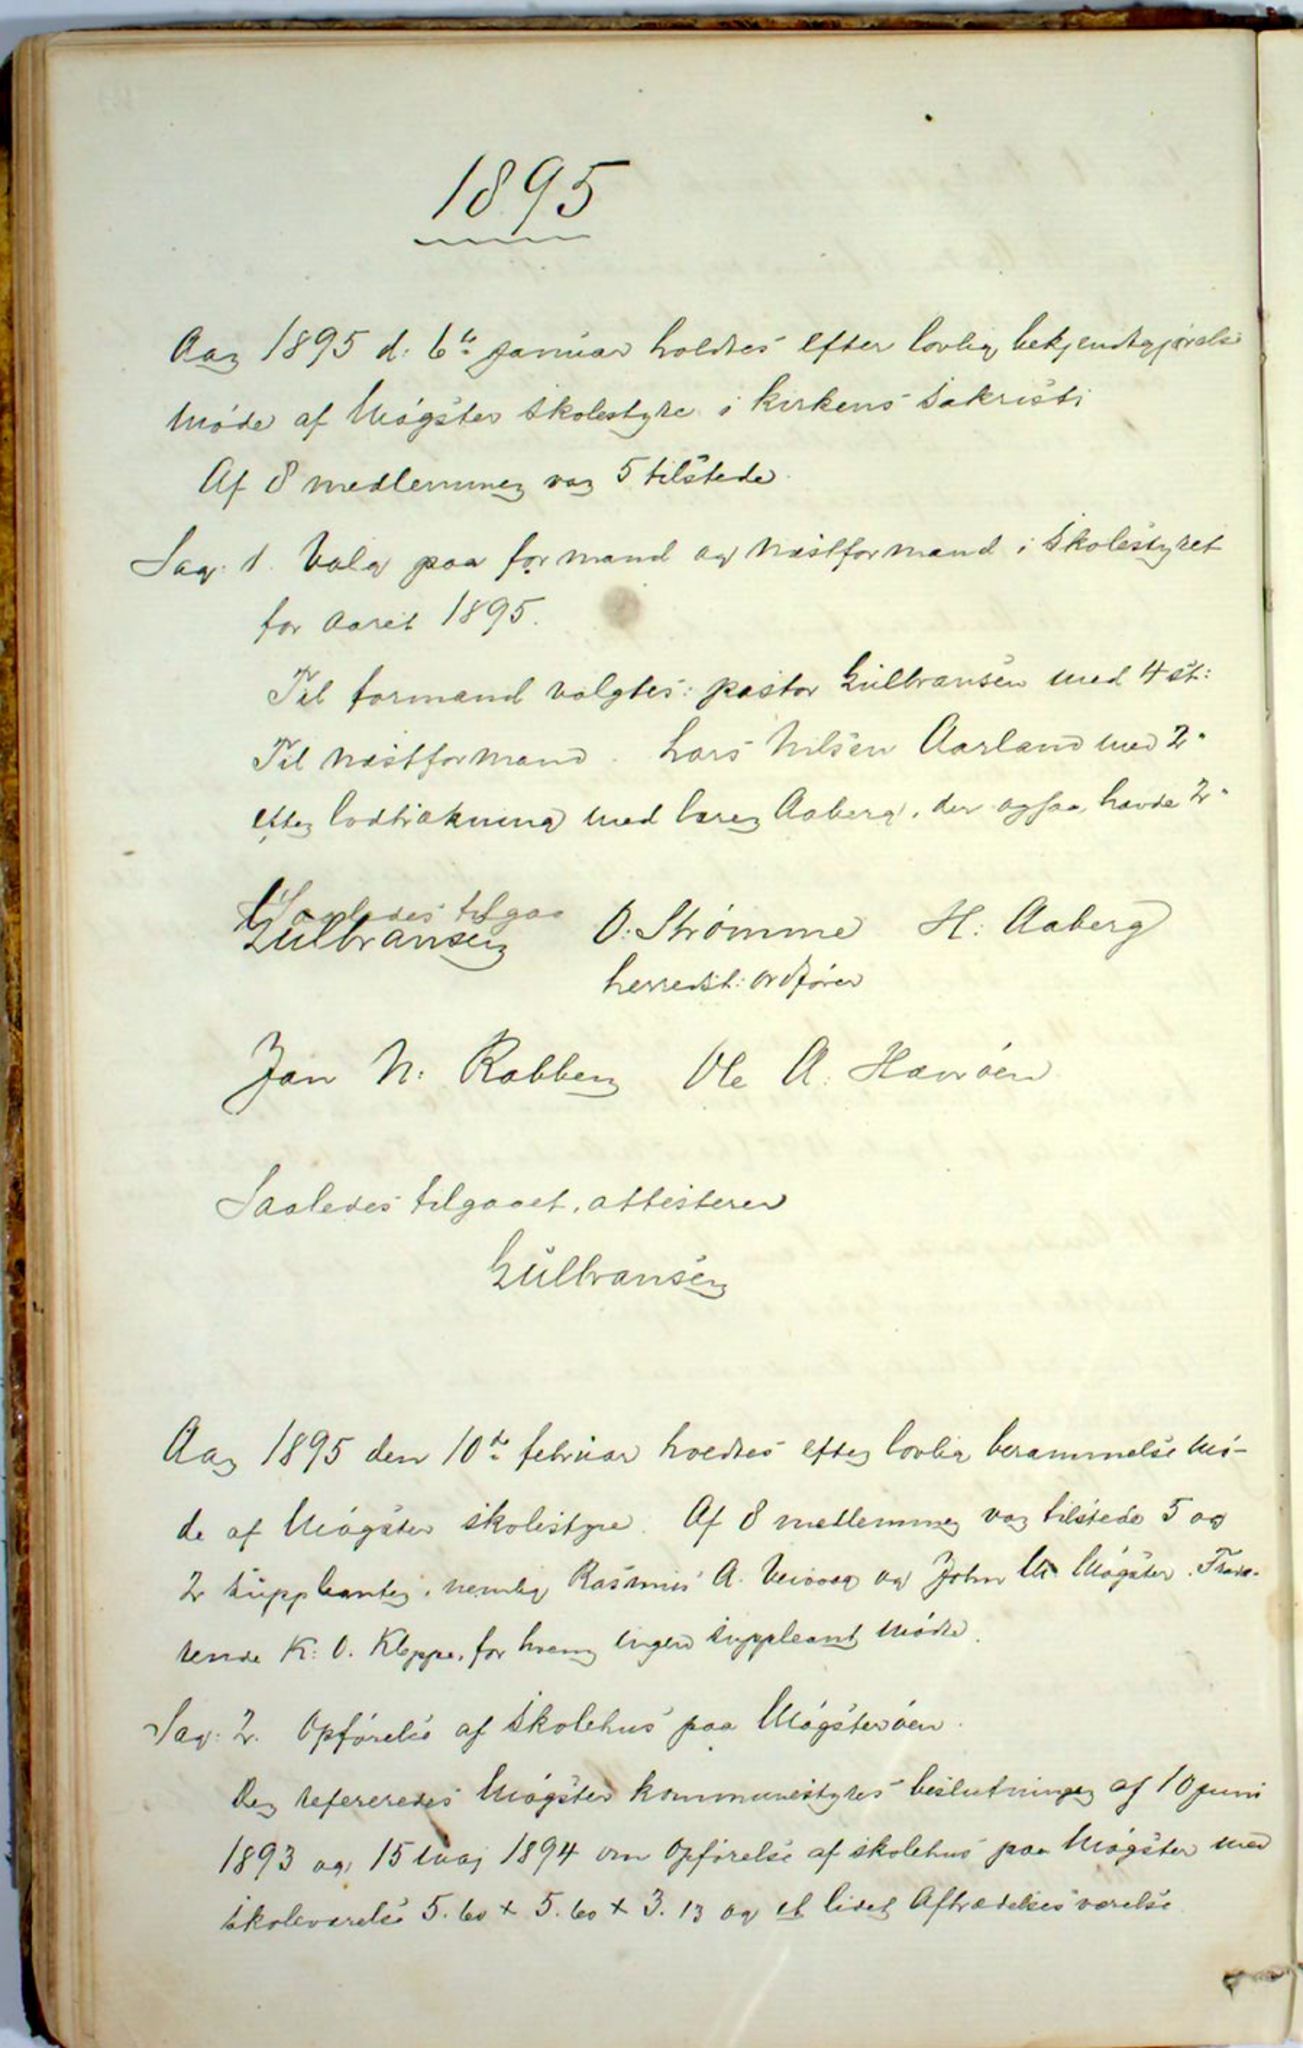 1895
Aar 1895 d: 6te januar holdtes efter lovlig bekjendtgjørelse
Møde af Møgster skolestyre i kirkens sakristi
Af 8 medlemmer var 5 tilstede.
Sag: 1. Valg paa formand og næstformand i skolestyret
for aaret 1895.
Til formand valgtes: pastor Gulbransen med 4 st:
Til næstformand. Lars Nilsen Aarland med 2 "
efter lodtrækning med lærer Aaberg, der ogsaa havde 2 "
Saaledes tilgaa
Gulbransen O. Strømme H. Aaberg
herredst: ordfører
Jan N: Rabben Ole A. Havrøen
Saaledes tilgaaet, attesterer
Gulbransen
Aar 1895 den 10de februar holdtes efter lovlig berammelse Mø-
de af Møgster skolestyre. Af 8 medlemmer var tilstede 5 og
2 suppleanter, nemlig Rasmus A. og John M. Møgster. Fravæ-
rende K: O. Kleppe, for hvem ingen suppleant mødte.
Sag: 2. Opførelse af skolehus paa Møgsterøen.
Der refereredes Møgster kommunestyres beslutninger af 10 juni
1893 og 15 maj 1894 om opførelse af skolehus paa Møgster med
skoleværelse 5.60 x 5.60 x 3.13 og et lidet Aftrædelsesværelse